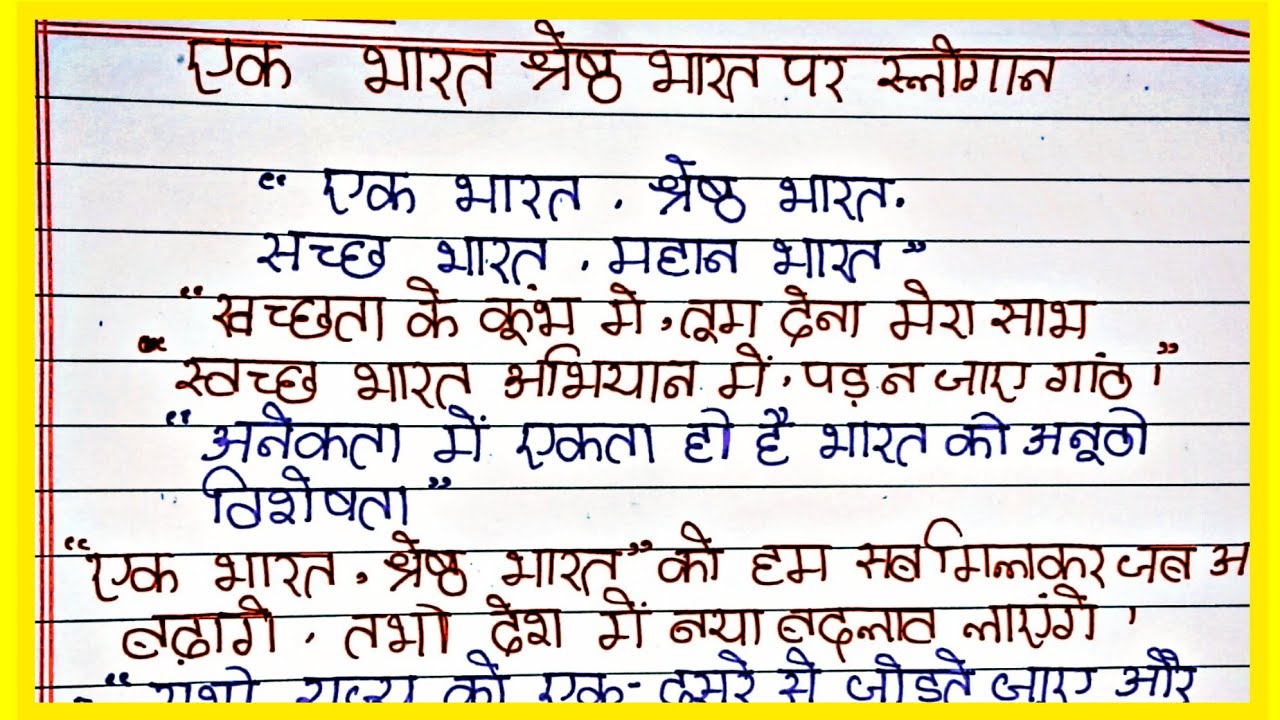 एक भारत श्रेष्ठ भारत पर स्लोगान
“ एक भारत . श्रेष्ठ भारत.
सच्छ भारत . महान भारत ”
“स्वच्छता के कूंभ मे, तूम देना मेरा साभ
“ स्वच्छ भारत अभियान में, पड़ न जाए गांठ ।”
“अनेकता में एकता हो है भारत की अनूठो
विशेषता”
“एक भारत, श्रेष्ठ भारत” को हम सब मिलकर जब अ
बढ़ागे . तभो देश में नया बदलाव लाएंगे ।
को एक-दूसरे से जोड़ते जाए और